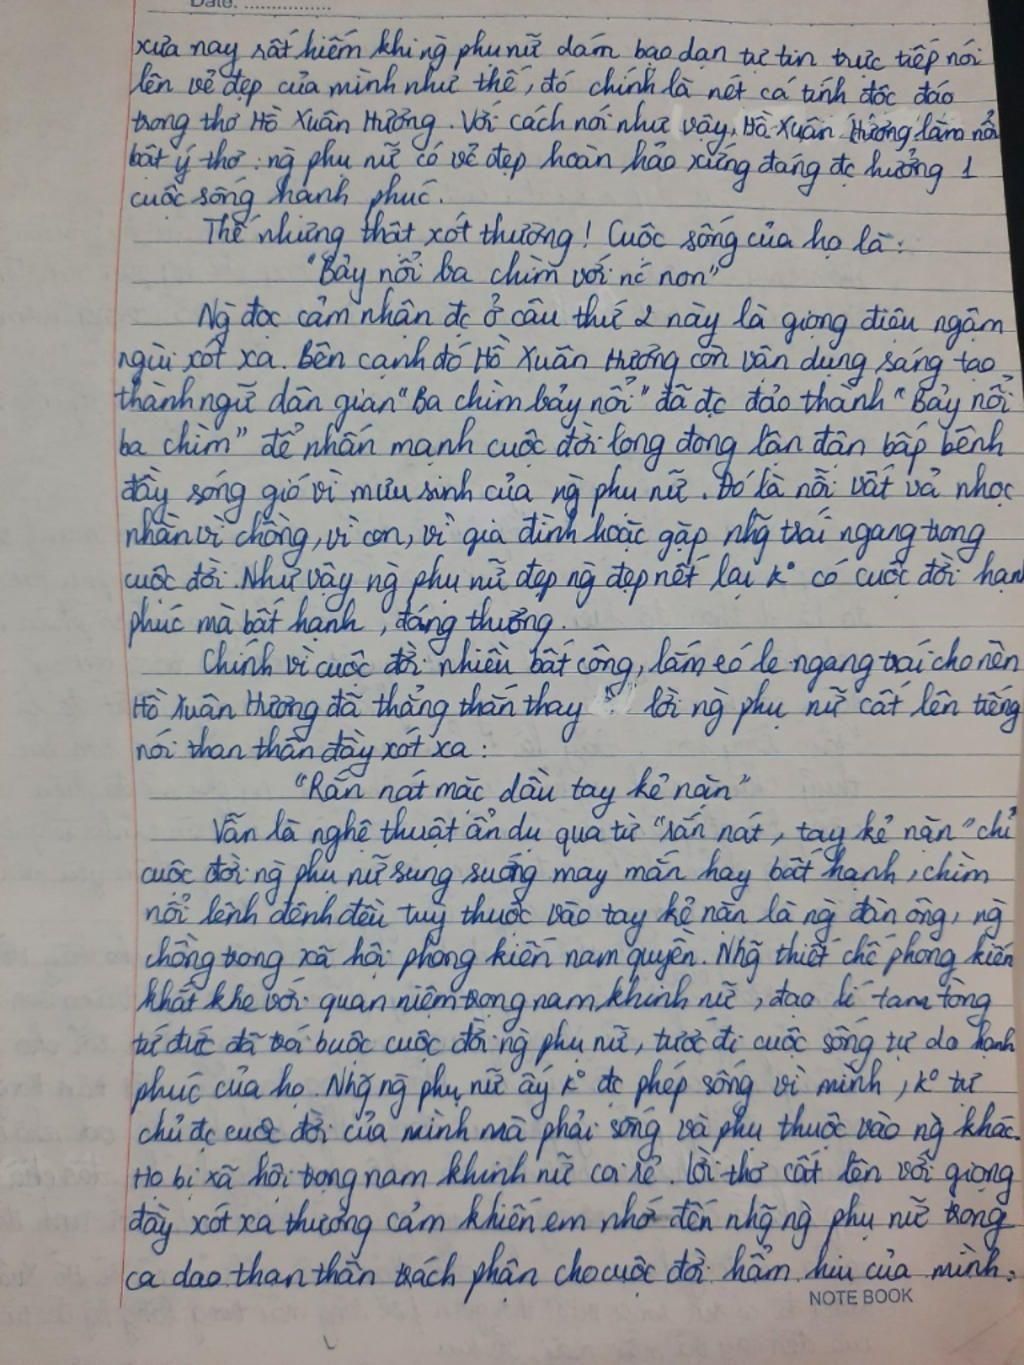 Date: ..................
xưa nay rất hiếm khi ng̀ phụ nữ dám bạo dạn tự tin trực tiếp nói
lên vẻ đẹp của mình như thế, đó chính là nét cá tính độc đáo
trong thơ Hồ Xuân Hương. Với cách nói như vậy, Hồ Xuân Hương làm nổi
bật ý thơ: ng̀ phụ nữ có vẻ đẹp hoàn hảo xứng đáng đc hưởng 1
cuộc sống hạnh phúc.
Thế nhưng thật xót thương! Cuộc sống của họ là:
"Bảy nổi ba chìm với nc non"
Ng̀ đọc cảm nhận đc ở câu thứ 2 này là giọng điệu ngậm
ngùi xót xa. Bên cạnh đó Hồ Xuân Hương còn vận dụng sáng tạo
thành ngữ dân gian "Ba chìm bảy nổi" đã đc đảo thành "Bảy nổi
ba chìm" để nhấn mạnh cuộc đời long đong lận đận bấp bênh
đầy sóng gió vì mưu sinh của ng̀ phụ nữ. Đó là nỗi vất vả nhọc
nhằn vì chồng, vì con, vì gia đình hoặc gặp nhg̃ trái ngang trong
cuộc đời. Như vậy ng̀ phụ nữ đẹp ng̀ đẹp nết lại k° có cuộc đời hạnh
phúc mà bất hạnh, đáng thương.
Chính vì cuộc đời nhiều bất công, lắm éo le ngang trái cho nên
Hồ Xuân Hương đã thẳng thắn thay lời ng̀ phụ nữ cất lên tiếng
nói than thân đầy xót xa:
"Rắn nát mặc dầu tay kẻ nặn"
Vẫn là nghệ thuật ẩn dụ qua từ "rắn nát, tay kẻ nặn" chỉ
cuộc đời ng̀ phụ nữ sung sướng may mắn hay bất hạnh, chìm
nổi lênh đênh đều tuỳ thuộc vào tay kẻ nặn là ng̀ đàn ông, ng̀
chồng trong xã hội phong kiến nam quyền. Nhg̃ thiết chế phong kiến
khắt khe với quan niệm trọng nam khinh nữ, đạo lí tam tòng
tứ đức đã trói buộc cuộc đời ng̀ phụ nữ, tước đi cuộc sống tự do hạnh
phúc của họ. Nhg̃ ng̀ phụ nữ ấy k° đc phép sống vì mình, k° tự
chủ đc cuộc đời của mình mà phải sống và phụ thuộc vào ng̀ khác.
Họ bị xã hội trọng nam khinh nữ coi rẻ. Lời thơ cất lên với giọng
đầy xót xa thương cảm khiến em nhớ đến nhg̃ ng̀ phụ nữ trong
ca dao than thân trách phận cho cuộc đời hẩm hiu của mình:
NOTE BOOK